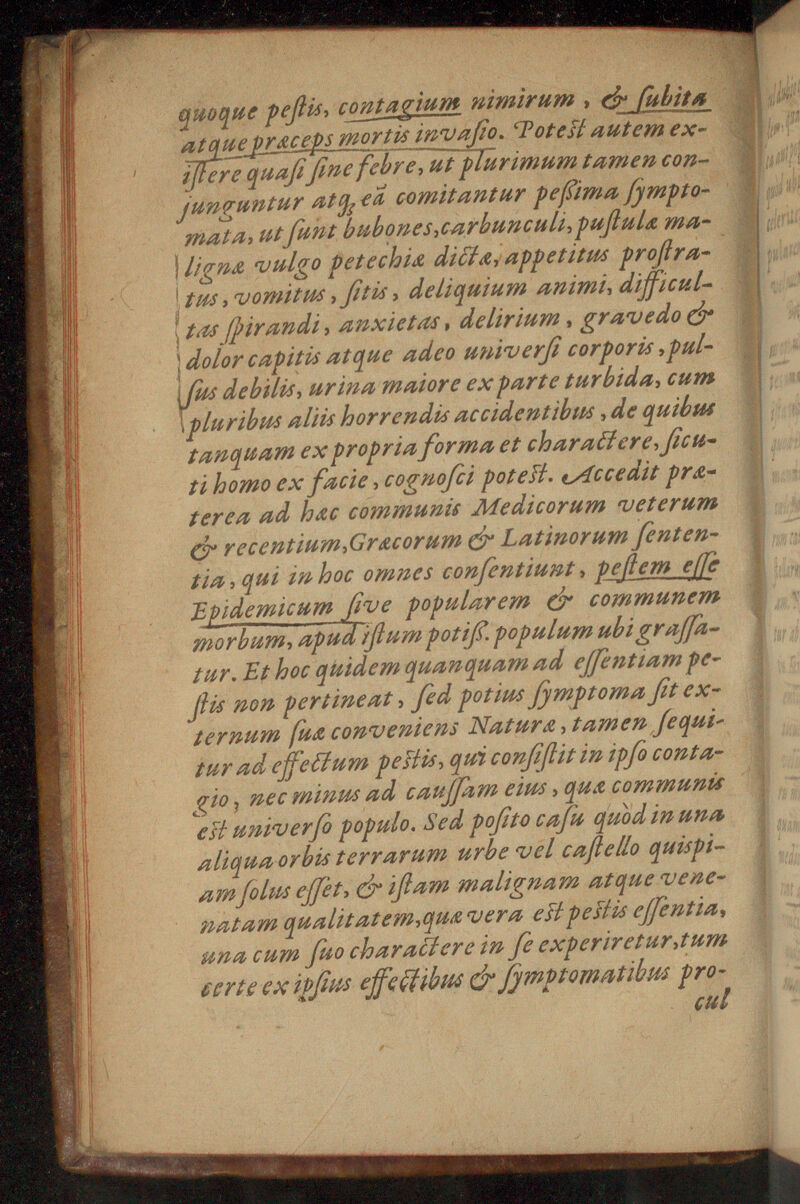 quoque peſtis, contagium nimirum, & ſubita
atque præceps mortis invaſio. Poteſt autem ex-
iſtere quaſi ſine febre, ut plurimum tamen con-
junguntur atq; eâ comitantur peſſima ſympto-
mata, ut ſunt bubones, carbunculi, puſtulæ ma-
lignæ vulgo petechiæ dictæ, appetitus proſtra-
tus, vomitus, ſitis, deliquium animi, difficul-
tas ſpirandi, anxietas, delirium, gravedo &
dolor capitis atque adeo univerſi corporis, pul-
ſus debilis, urina maiore ex parte turbida, cum
pluribus aliis horrendis accidentibus, de quibus
tanquam ex propria forma et charactere, ſicu-
ti homo ex facie, cognoſci poteſt. Accedit præ-
terea ad hæc communis Medicorum veterum
& recentium, Græcorum & Latinorum ſenten-
tia, qui in hoc omnes conſentiunt, peſtem eſſe
Epidemicum ſive popularem & communem
morbum, apud iſtum potiſſ. populum ubi graſſa-
tur. Et hoc quidem quanquam ad eſſentiam pe-
ſtis non pertineat, ſed potius ſymptoma ſit ex-
ternum ſuæ conveniens Naturæ, tamen ſequi-
tur ad effectum peſtis, qui conſiſtit in ipſo conta-
gio, nec minus ad cauſſam eius, quæ communis
eſt univerſo populo. Sed poſito caſu quòd in una
aliqua orbis terrarum urbe vel caſtello quispi-
am ſolus eſſet, & iſtam malignam atque vene-
natam qualitatem, quæ vera eſt peſtis eſſentia,
una cum ſuo charactere in ſe experiretur, tum
certe ex ipſius effectibus & ſymptomatibus pro-
cul